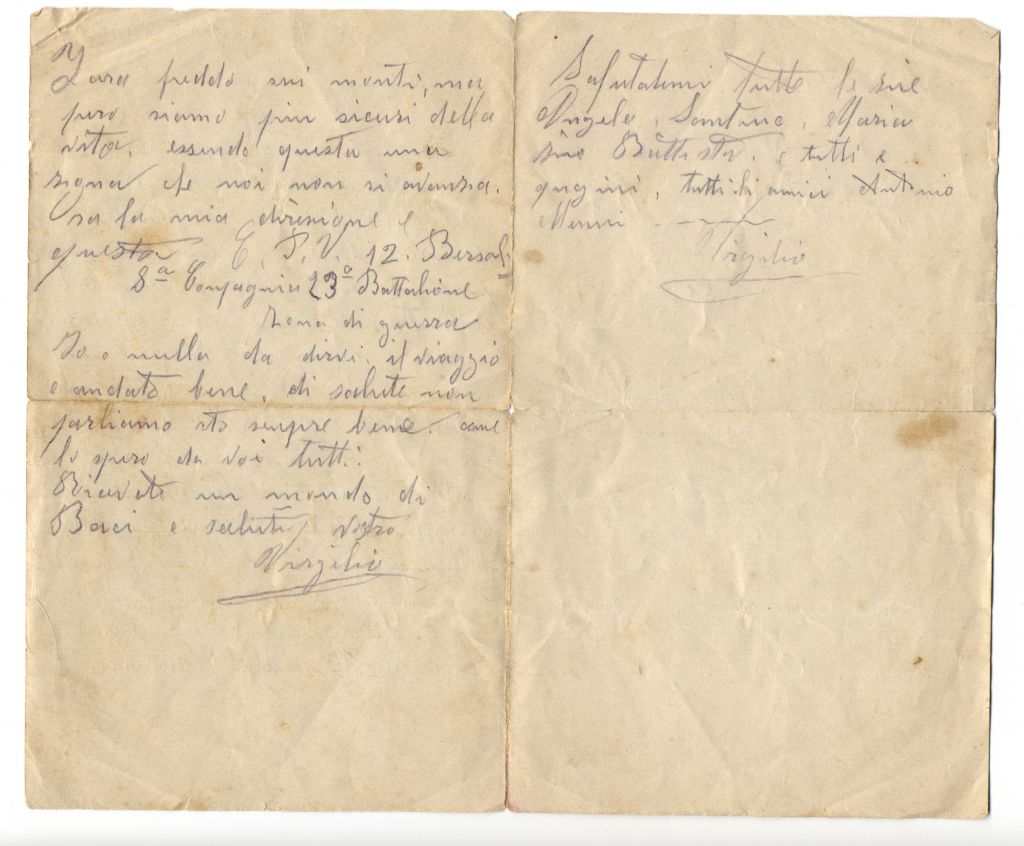 Zara freddo sui monti, ma
pero siamo piu sicuri della
vita, essendo questa una
signa che noi non si avanza.
sa la mia direzione e
questa E. P. V. 12. Bersal.
8a Compagnia 23o Battalione
Zona di guerra
Io o nulla da dirvi, il viaggio
e andato bene, di salute non
parliamo sto sempre bene. come
lo spero da voi tutti.
Ricevete un mondo di
Baci e saluti vostro
Virgilio
Salutatemi tutte le zie
Angele, Santina, Maria
zio Battista. e tutti e
qugini, tutti li amici Antonio
Menni
Virgilio